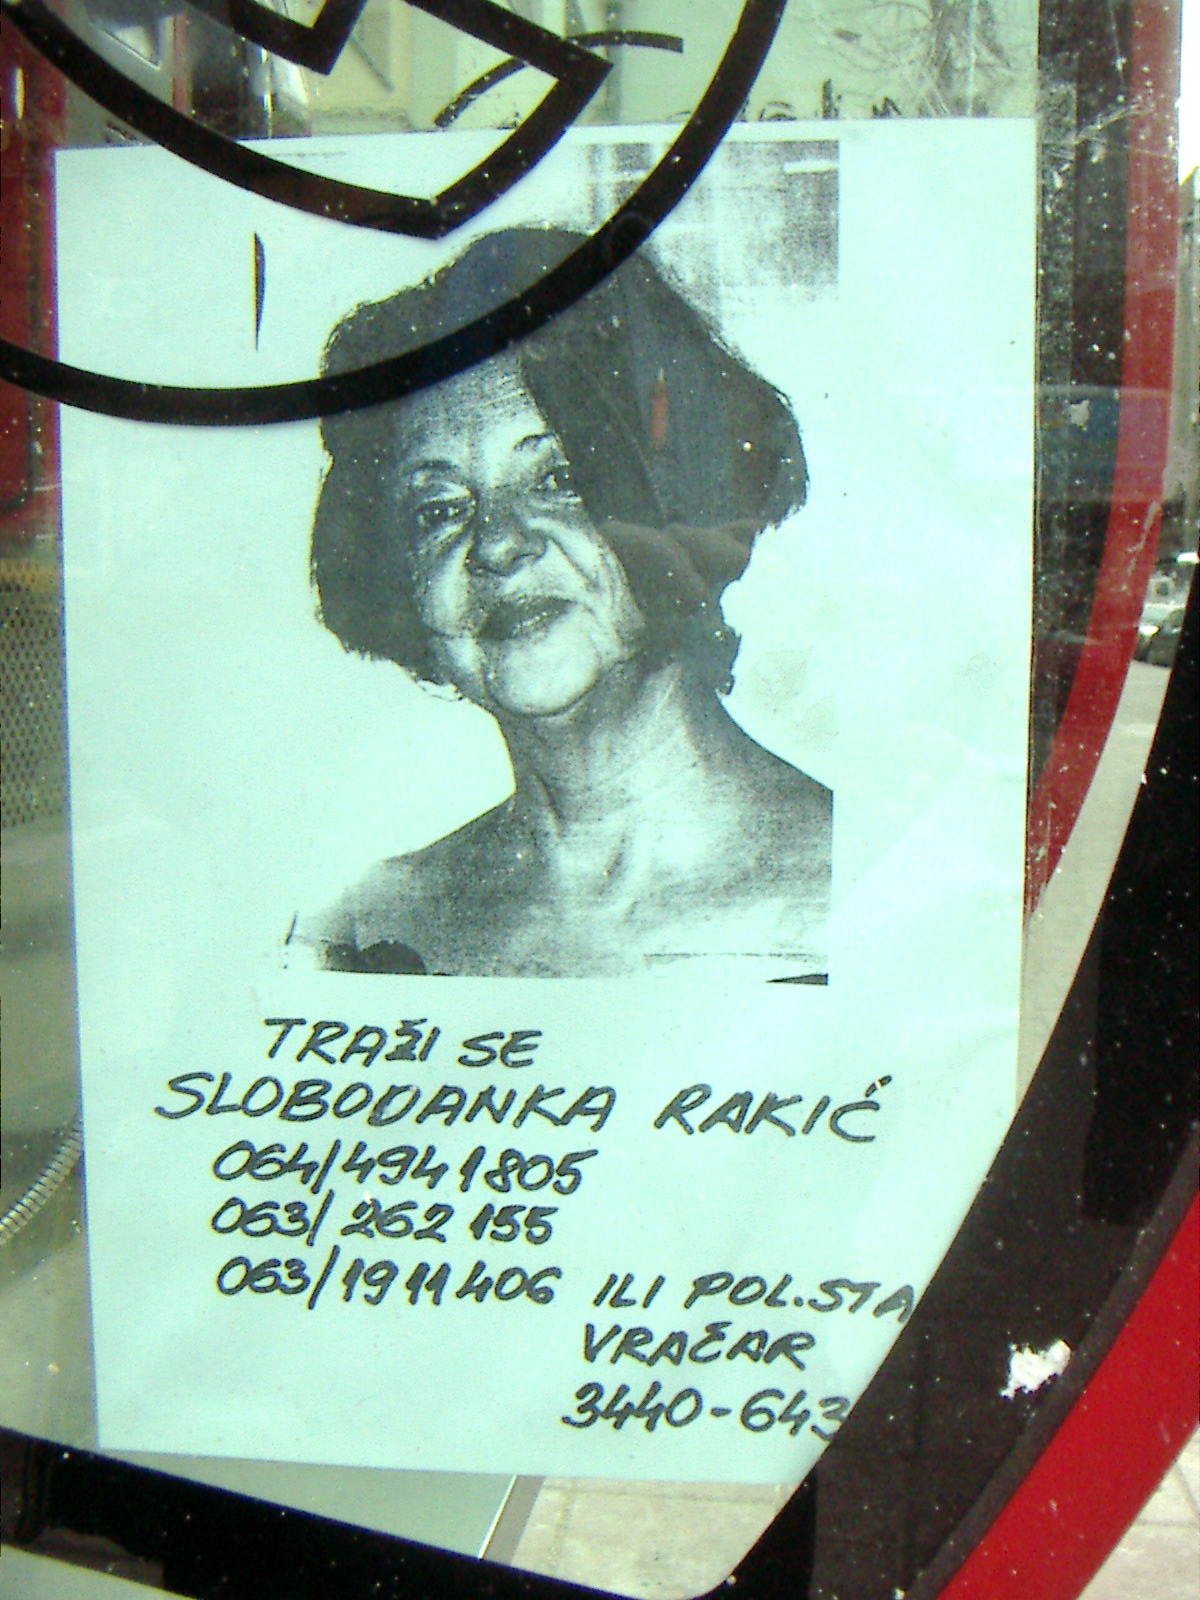 TRAŽI SE
SLOBODANKA RAKIĆ
064/494 1805
063/ 262 155
063/1911 406 ILI POL.STA
VRAČAR
3440-643